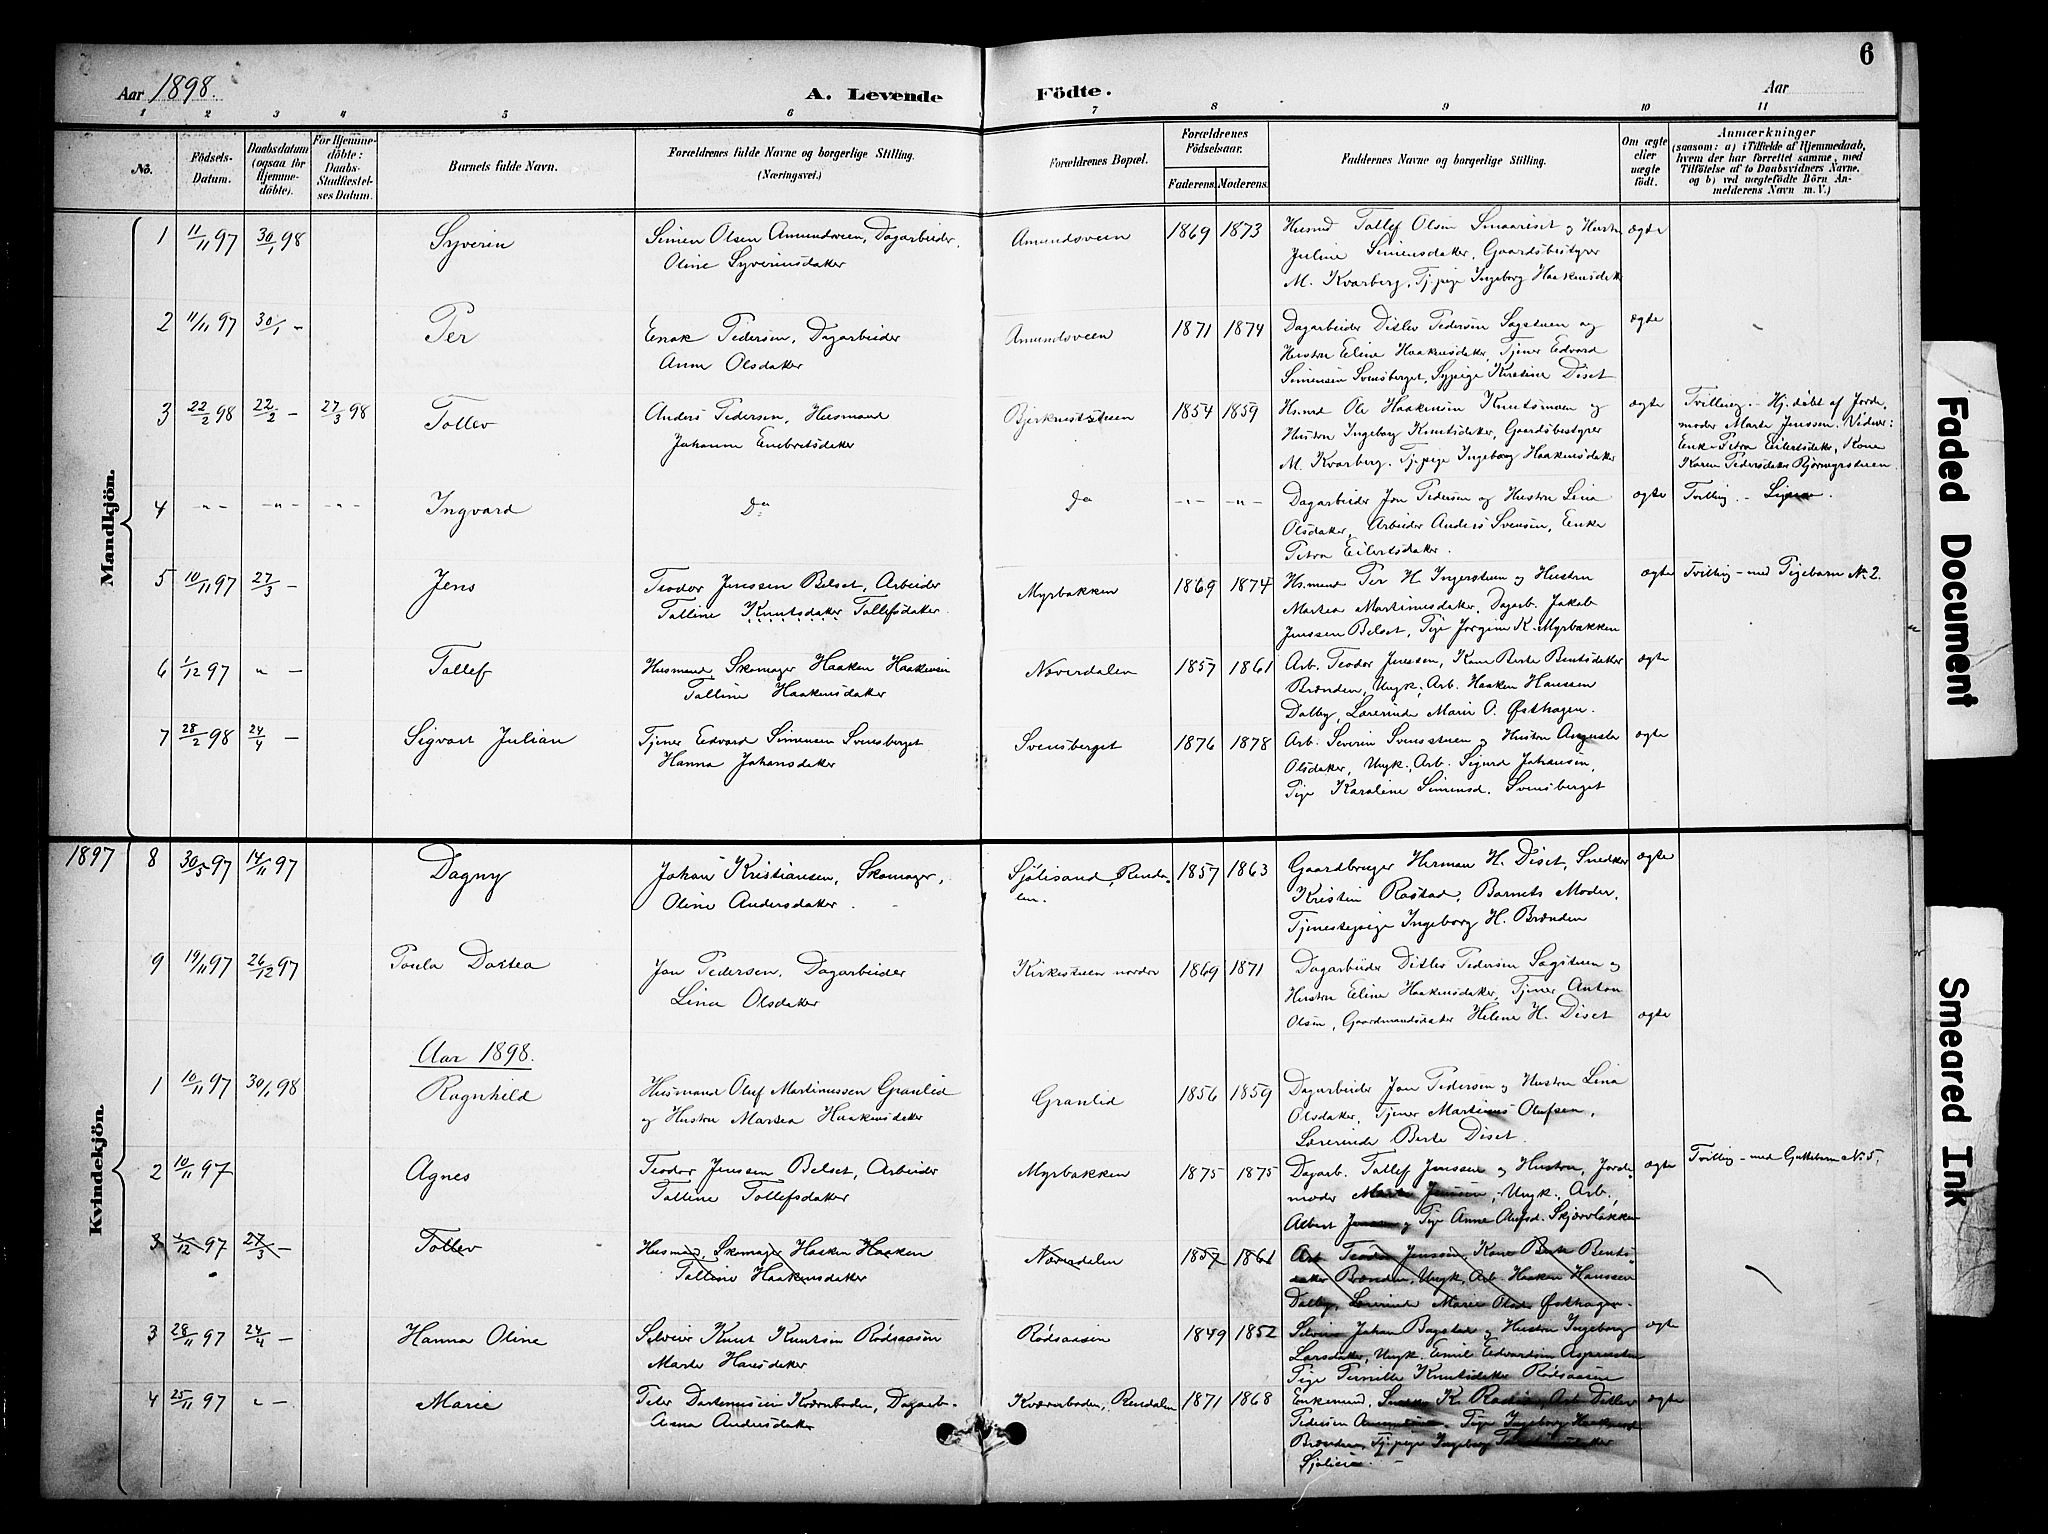 6
Aar 1898. A. Levende Födte. Aar
1 2 3 4 5 6 7 8 9 10 11
No. Födsels-Datum. Daabsdatum (ogsaa for Hjemme-döbte). For Hjemme-döbte: Daabs-Stadfæstel-ses Datum. Barnets fulde Navn. Forældrenes fulde Navne og borgerlige Stilling. (Næringsvei.) Forældrenes Bopæl. Forældrenes Födselsaar. Faderens. Moderens. Faddernes Navne og borgerlige Stilling. Om ægte eller uægte født. Anmærkninger (saasom: a) i Tilfælde af Hjemmedaab, hvem der har forrettet samme, med Tilföielse af to Daabsvidners Navne, og b) ved uægtefödte Börn An-melderens Navn m. V.)
Mandkjön.
1 11/11 97 30/1 98 Syverin Simen Olsen Amundsveen, Dagarbeider, Amundsveen 1869 1873 Husmd Tollef Olsen Smaariset og Hustru ægte
Oline Syverinsdatter Juline Simensdatter, Gaardsbestyrer
M. Kvarberg, Tj.pige Ingeborg Haakensdatter
2 11/11 97 30/1 - Per Enok Pedersen, Dagarbeider Amundsveen 1871 1874 Dagarbeider Ditlev Pedersen Sagstuen og ægte
Anne Olsdatter Hustru Eline Haakensdatter, Tjener Edvard
Simensen Svensberget, Sypige Kristine Diset
3 22/2 98 22/2 - 27/3 98 Tollev Anders Pedersen, Husmand Bjerknesstuen 1854 1859 Hsmd Ole Haakensen Knutsmoen og ægte Tvilling. - Hj.döbt af Jorde-
Johanne Enebretsdatter Hustru Ingeborg Knutsdatter, Gaardsbestyrer moder Marte Jenssen. Vidner:
M. Kvarberg. Tj.pige Ingeborg Haakensdatter Enke Petra Eilertsdatter, Kone
Karen Pedersdatter
4 -"- -"- -"- Ingvard Do Do -"- -"- Dagarbeider Jon Pedersen og Hustru Lina ægte Tvilling. -
Olsdatter, Arbeider Anders Svensen, Enke
Petra Eilertsdatter.
5 10/11 97 27/3 - Jens Teodor Jenssen Belset, Arbeider Myrbakken 1869 1874 Hs.mand Per H. Ingerstuen og Hustru ægte Tvilling - med Pigebarn No. 2.
Talline Knutsdatter Tollefsdatter. Martea Martinusdatter, Dagarb. Jakob
Jenssen Belset, Pige Jorgine K. Myrbakken
6 1/12 97 " - Tollef Husmand, Skomager Haaken Haakensen Noverdalen 1857 1861 Arb. Teodor Jenssen, Kone Berte Bentsdatter ægte
Talline Haakensdatter Brænden, Ungk. Arb. Haaken Hanssen
Dalby, Lærerinde Marie O. Østhagen.
7 28/2 98 24/4 - Sigvart Julian Tjener Edvard Simensen Svensberget Svensberget 1876 1878 Arb. Severin Svensstuen og Hustru Augusta ægte
Hanna Johansdatter Olsdatter, Ungk. Arb. Sigurd Johansen,
Pige Karoline Simensd. Svensberget
Kvindekjön.
1897 8 30/5 97 14/11 97 Dagny Johan Kristiansen, Skomager, Sjölisand, Renda- 1857 1863 Gaardbruger Herman H. Diset, Snedker ægte
Oline Andersdatter. len. Kristen Rastad, Barnets Moder,
Tjenestepige Ingeborg H. Brænden
9 19/11 97 26/12 97 Paula Dortea Jon Pedersen, Dagarbeider Kirkestuen nordre 1869 1871 Dagarbeider Ditlev Pedersen Sagstuen og
Lina Olsdatter Hustru Eline Haakensdatter, Tjener Anton
Olsen, Gaardmandsdatter Helene H. Diset ægte
Aar 1898.
1 10/11 97 30/1 98 Ragnhild Husmand Oluf Martinussen Granlid Granlid 1856 1859 Dagarbeider Jon Pedersen og Hustru Lina
og Hustru Martea Haakensdatter Olsdatter, Tjener Martinus Olufsen,
Lærerinde Berte Diset.
2 10/11 97 Agnes Teodor Jenssen Belset, Arbeider Myrbakken 1875 1875 Dagarb. Tollef Jenssen og Hustru, Jorde- ægte Tvilling - med Guttebarn No 5.
Talline Tollefsdatter moder Marte Jenssen, Ungk. Arb.
Albert Jenssen og Pige Anne Olufsd. Skjærvbakken
3 1/12 97 27/3 - Tollev Husmand, Skomager Haaken Haaken Noverdalen 1857 1861 Arb Teodor Jenssen, Kone Berte Bents-
Talline Haakensdatter datter Brænden, Ungk. Arb. Haaken Hanssen
Dalby, Lærerinde Marie Olsd. Østhagen.
3 28/11 97 24/4 - Hanna Oline Selveier Knut Knutsen Rödsaasen Rödsaasen 1849 1852 Selveier Johan Bagstad og Hustru Ingeborg ægte
Marte Hansdatter Larsdatter, Ungk. Emil Edvardsen
Pige Pernille Knutsdatter Rödsaasen
4 25/11 97 " - Marie Peter Dortenussen Kværnboden, Dagarb. Kværnboden, Rendalen 1871 1868 Enkemand K. Arb. Ditlev ægte
Anna Andersdatter Pedersen Pige Ingeborg
Brænden, Tj.pige Ingeborg
Faded Document
Smeared Ink